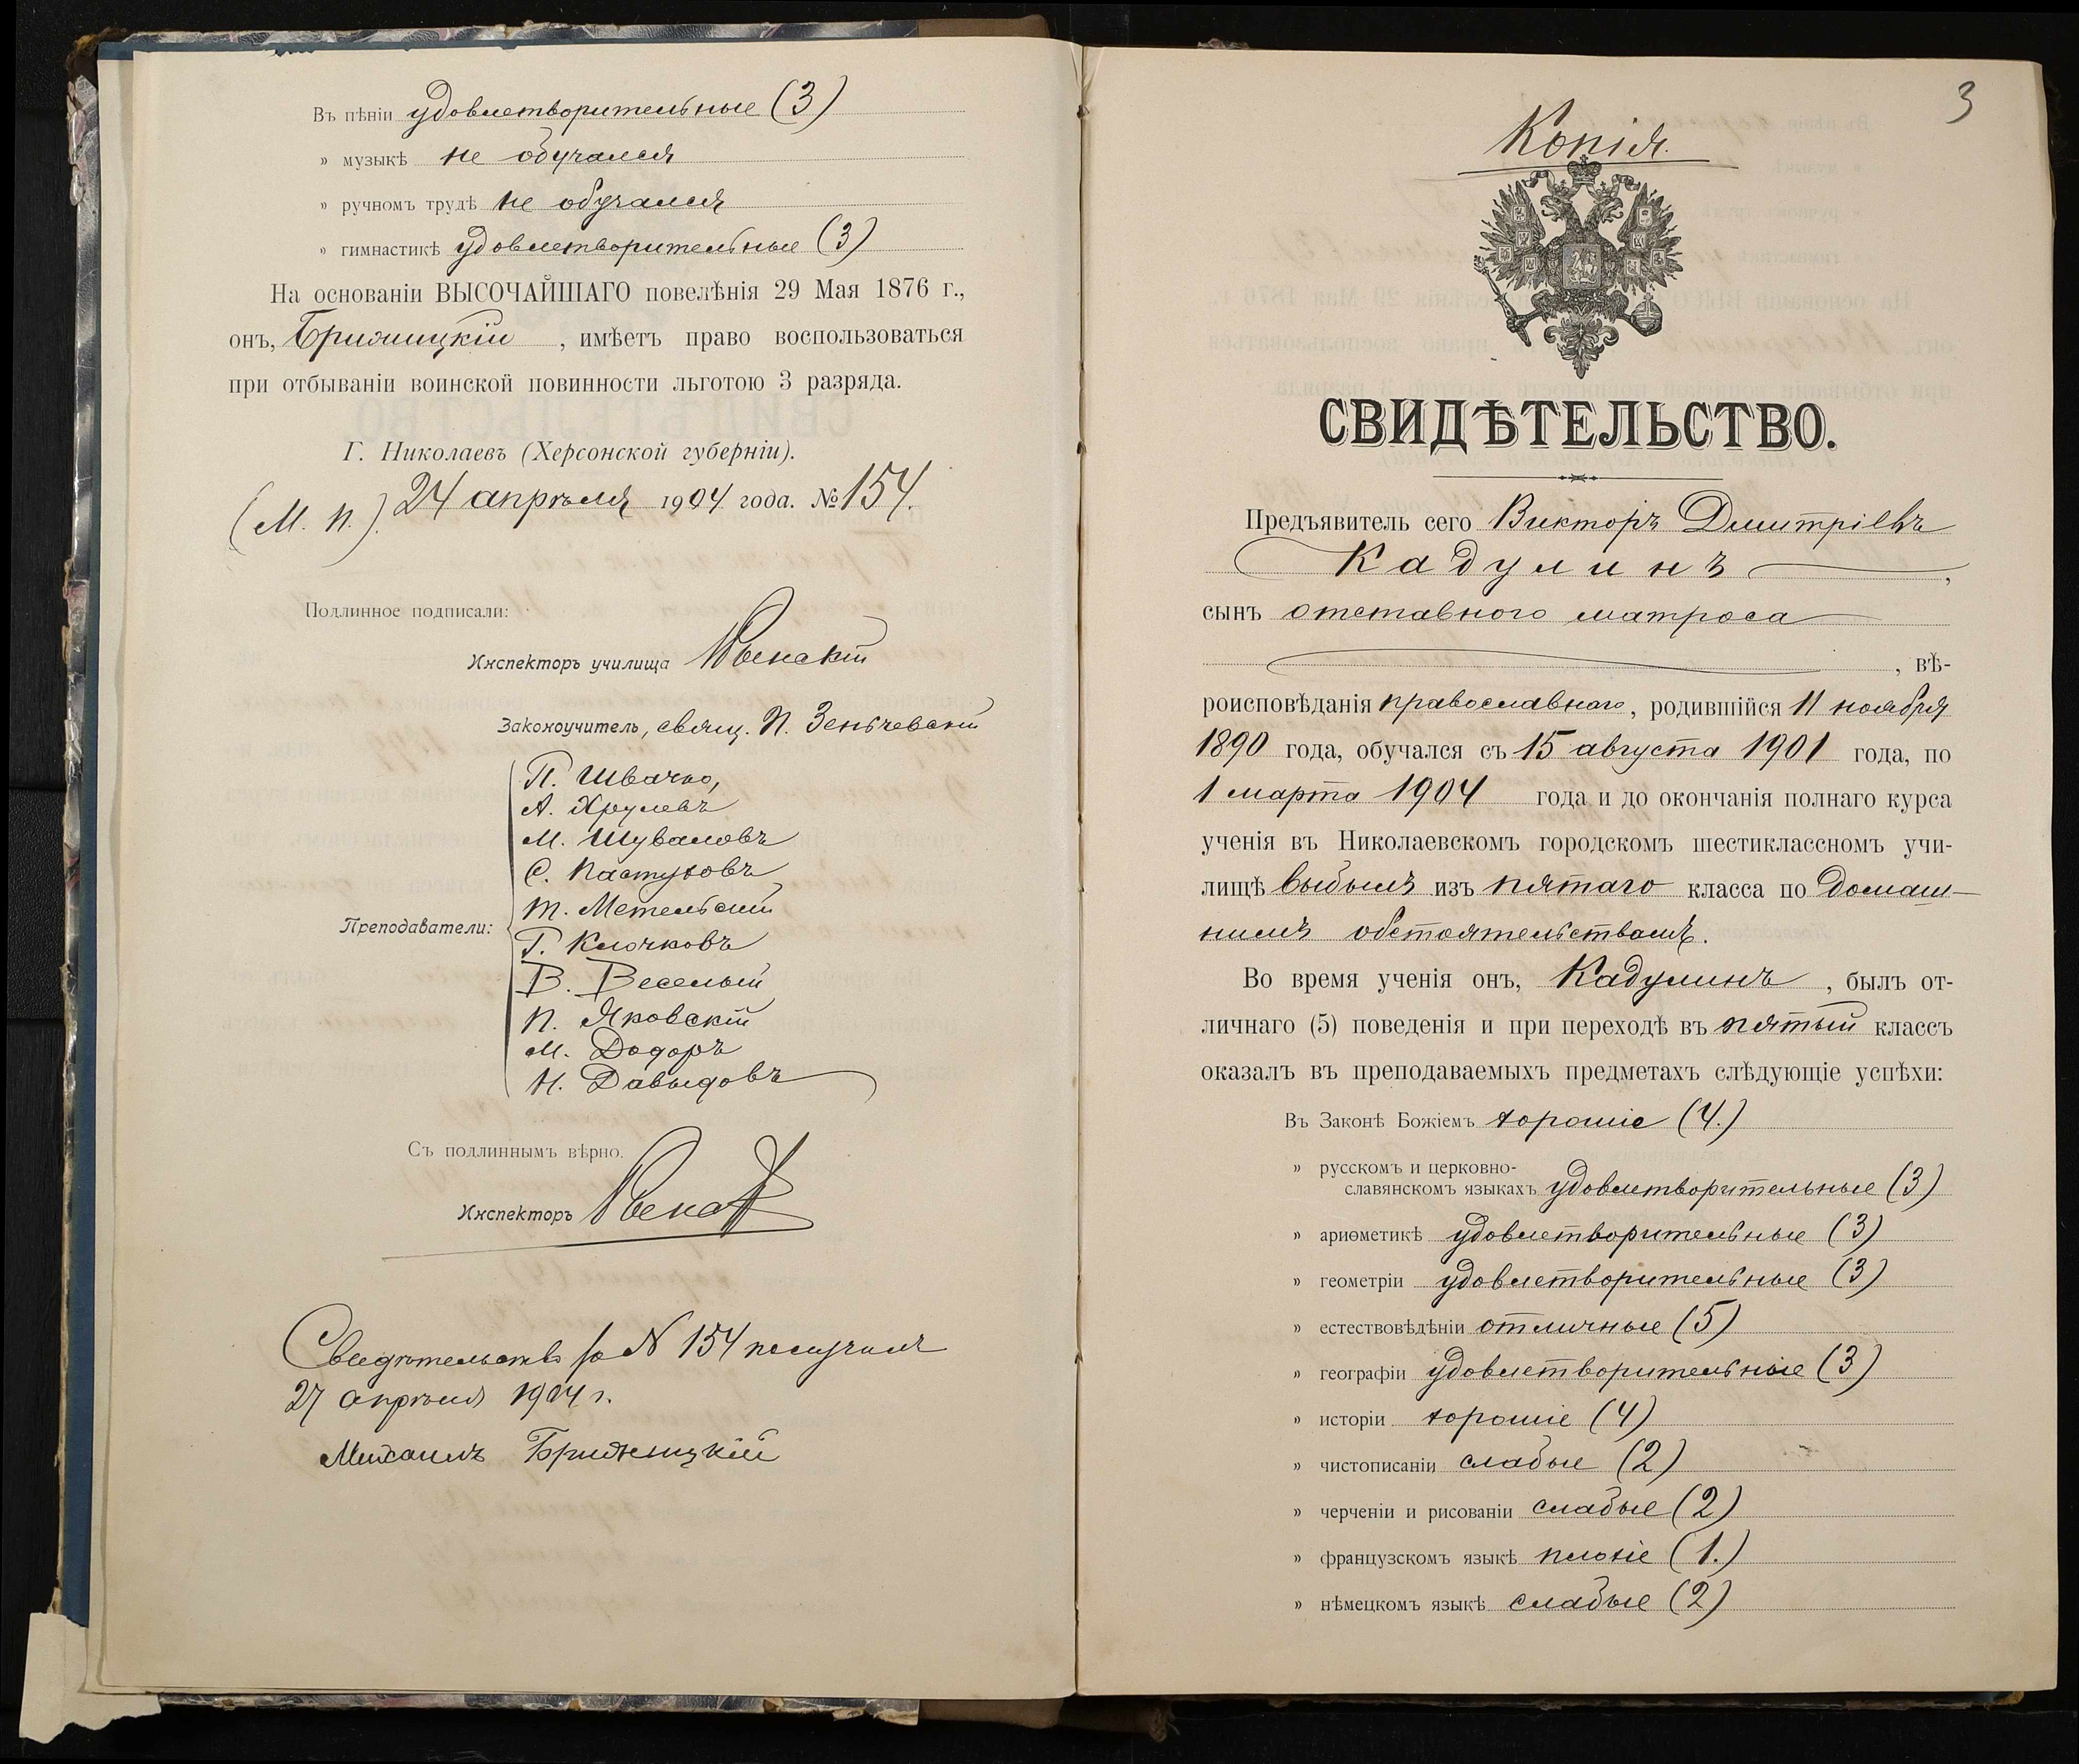 Въ пѣніи удовлетворительные (3)
» музыкѣ не обучался
» ручномъ трудѣ не обучался
» гимнастикѣ удовлетворительные (3)
На основаніи ВЫСОЧАЙШАГО повелѣнія 29 Мая 1876 г.,
онъ, Брижицкій, имѣетъ право воспользоваться
при отбываніи воинской повинности льготою 3 разряда.
Г. Николаевъ (Херсонской губерніи).
(М. П.) 24 апрѣля 1904 года. № 154.
Подлинное подписали:
Инспекторъ училища
Законоучитель, свящ. П. Зеньчевскій
Преподаватели:
П. Швачко,
А. Хрулевъ
М. Шуваловъ
С. Пастуховъ
Т. Метельскій
Г. Клочковъ
В. Веселый
П. Яковскій
М. Додоръ
Н. Давыдовъ
Съ подлиннымъ вѣрно.
Инспекторъ
Свидѣтельство за № 154 получилъ
27 апрѣля 1904 г.
Михаилъ Брижицкій
3
Копія.
СВИДѢТЕЛЬСТВО.
Предъявитель сего Викторъ Дмитріевъ
Кадулинъ,
сынъ отставного матроса
, вѣ-
роисповѣданія православнаго, родившійся 11 ноября
1890 года, обучался съ 15 августа 1901 года, по
1 марта 1904 года и до окончанія полнаго курса
ученія въ Николаевскомъ городскомъ шестиклассномъ учи-
лищѣ выбылъ изъ пятаго класса по домаш-
нимъ обстоятельствамъ.
Во время ученія онъ, Кадулинъ, былъ от-
личнаго (5) поведенія и при переходѣ въ пятый классъ
оказалъ въ преподаваемыхъ предметахъ слѣдующіе успѣхи:
Въ Законѣ Божіемъ хорошіе (4.)
» русскомъ и церковно-
славянскомъ языкахъ удовлетворительные (3)
» ариѳметикѣ удовлетворительные (3)
» геометріи удовлетворительные (3)
» естествовѣдѣніи отличные (5)
» географіи удовлетворительные (3)
» исторіи хорошіе (4)
» чистописаніи слабые (2)
» черченіи и рисованіи слабые (2)
» французскомъ языкѣ плохіе (1.)
» нѣмецкомъ языкѣ слабые (2)